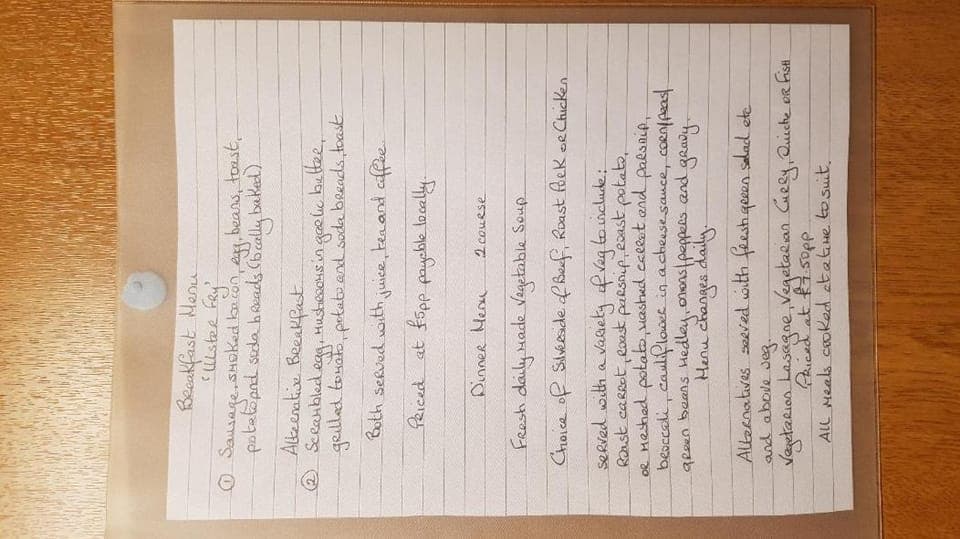 Breakfast Menu
'Ulster Fry'
① Sausage, smoked bacon, egg, beans, toast,
potato and soda breads (locally baked)
Alternative Breakfast
② Scrambled egg, Mushrooms in garlic butter,
grilled tomato, potato and soda breads, toast
Both served with juice, tea and coffee.
Priced at £5pp payable locally.
Dinner Menu 2 course
Fresh daily made Vegetable Soup
Choice of Silverside of Beef, Roast Pork or Chicken
served with a variety of veg to include:
Roast carrot, roast parsnip, roast potato,
or mashed potato, mashed carrot and parsnip,
broccoli, cauliflower in a cheese sauce, corn/peas/
green beans medley, onions/peppers and gravy.
Menu changes daily
Alternatives served with fresh green salad etc
and above veg
Vegetarian Lasagne, Vegetarian Curry, Quiche or Fish
Priced at £7.50pp
All meals cooked at a time to suit.